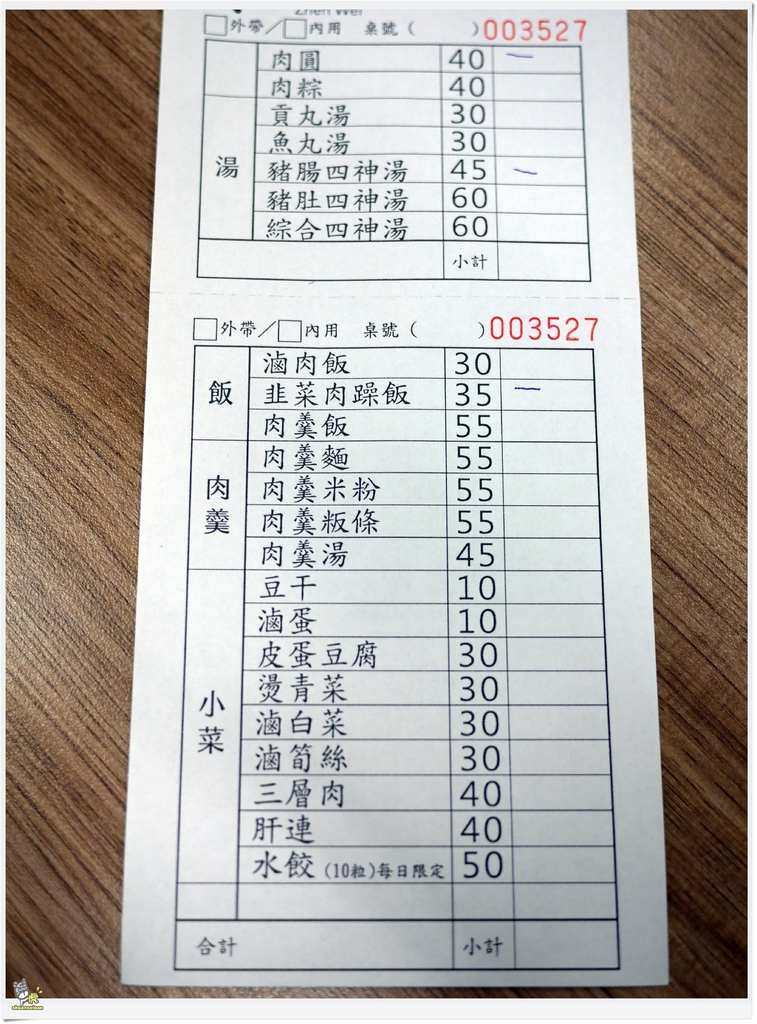 Zhen Wei
□外帶／□內用 桌號( )003527
肉圓 40 一
肉粽 40
湯
貢丸湯 30
魚丸湯 30
豬腸四神湯 45 一
豬肚四神湯 60
綜合四神湯 60
小計
□外帶／□內用 桌號( )003527
飯
滷肉飯 30
韭菜肉躁飯 35 一
肉羹飯 55
肉羹
肉羹麵 55
肉羹米粉 55
肉羹粄條 55
肉羹湯 45
小菜
豆干 10
滷蛋 10
皮蛋豆腐 30
燙青菜 30
滷白菜 30
滷筍絲 30
三層肉 40
肝連 40
水餃(10粒)每日限定 50
合計 小計